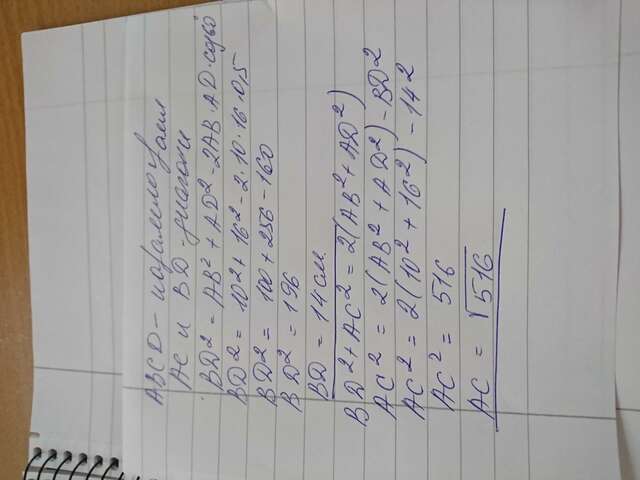 ABCD - параллелограмм
AC и BD - диагонали
BD² = AB² + AD² - 2AB · AD · cos60
BD² = 10² + 16² - 2 · 10 · 16 · 0,5
BD² = 100 + 256 - 160
BD² = 196
BD = 14 см
BD² + AC² = 2(AB² + AD²)
AC² = 2(AB² + AD²) - BD²
AC² = 2(10² + 16²) - 14²
AC² = 516
AC = √516